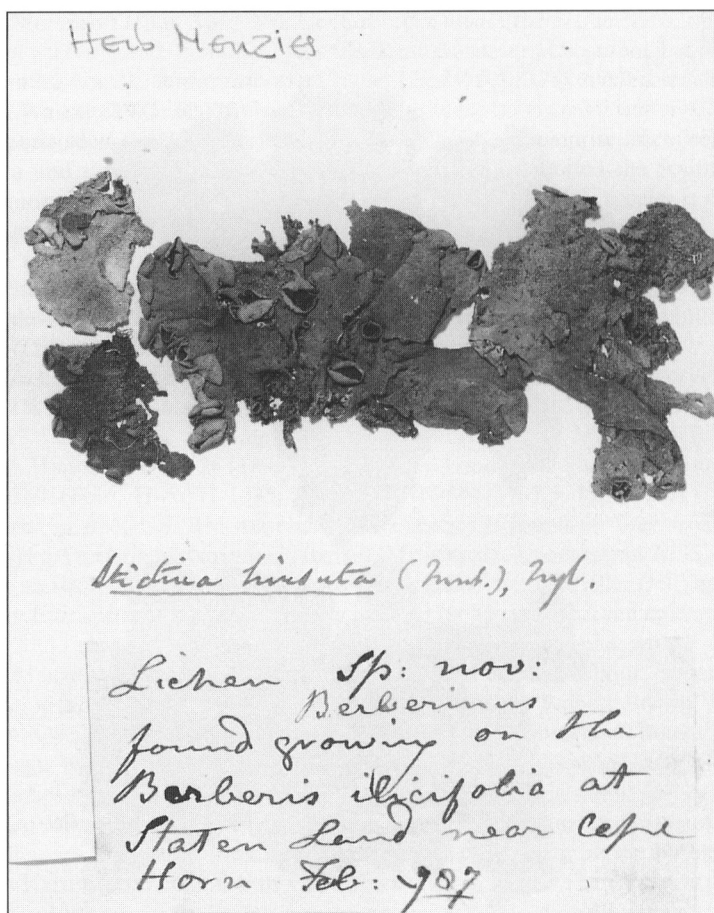 Herb Menzies
Stictina hirsuta (Mnt.), Nyl.
Lichen Sp: nov:
Berberinus
found growing on the
Berberis ilicifolia at
Staten Land near Cape
Horn Feb: 787